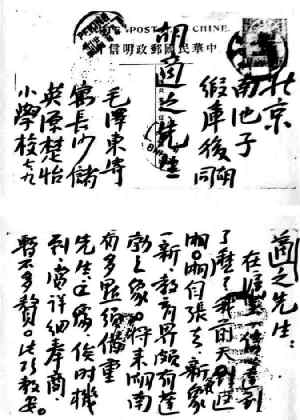 中華民國郵政明信
北京
南池子
緞庫後胡同
胡適之先生
毛澤東寄
寓長沙儲
英源楚怡
小學校 七九
適之先生：
在滬上一信達到
了麼？我前天返
湘。湘自張去，氣象
一新，教育界頗有蓬
勃之象。將來湖南
有多點須借重
先生，俟時機
到，當詳細奉商，
暫不多贅。此頌教安。